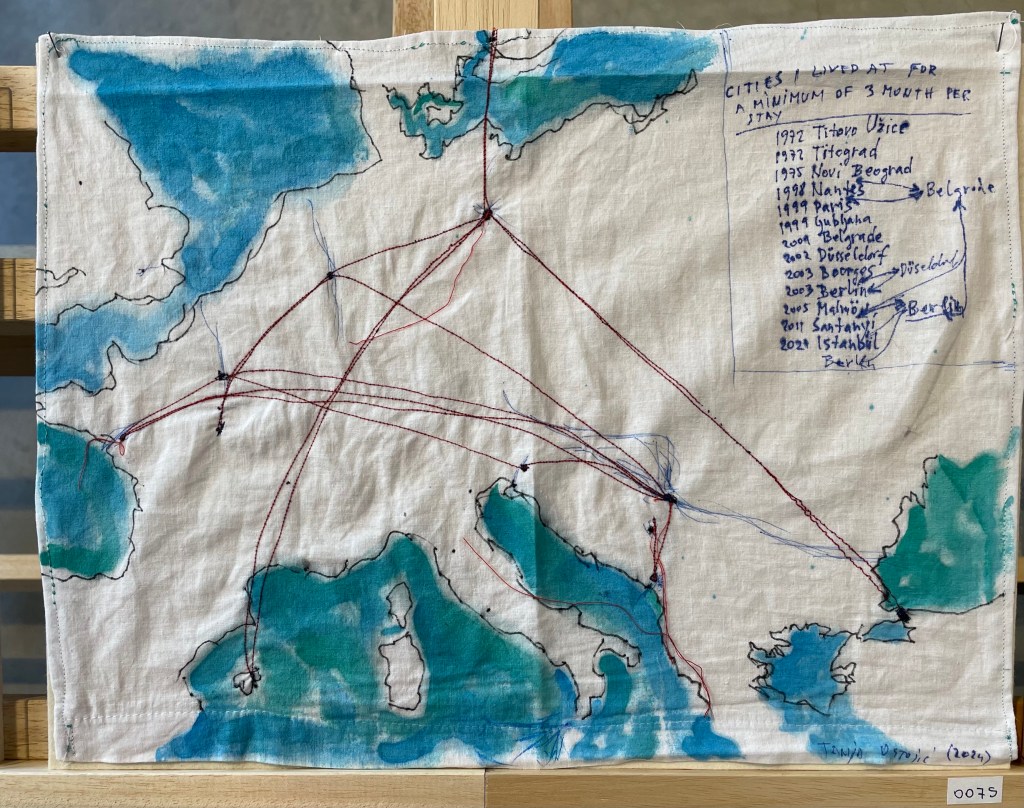 CITIES I LIVED AT FOR
A MINIMUM OF 3 MONTH PER
STAY
1972 Titovo Užice
1972 Titograd
1975 Novi Beograd
1998 Nantes
Belgrade
1999 Paris
1999 Ljubljana
2001 Belgrade
2002 Düsseldorf
2003 Bourges
Düseldorf
2003 Berlin
2005 Malmö
Berlin
2011 Santanyi
2021 Istanbul
Berlin
Tanja Ostojić (2024)
0075